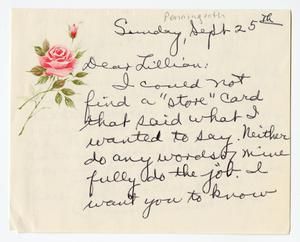 Pennington
Sunday, Sept 25th
Dear Lillian:
I could not
find a "store" card
that said what I
wanted to say. Neither
do any words of mine
fully do the job. I
want you to know